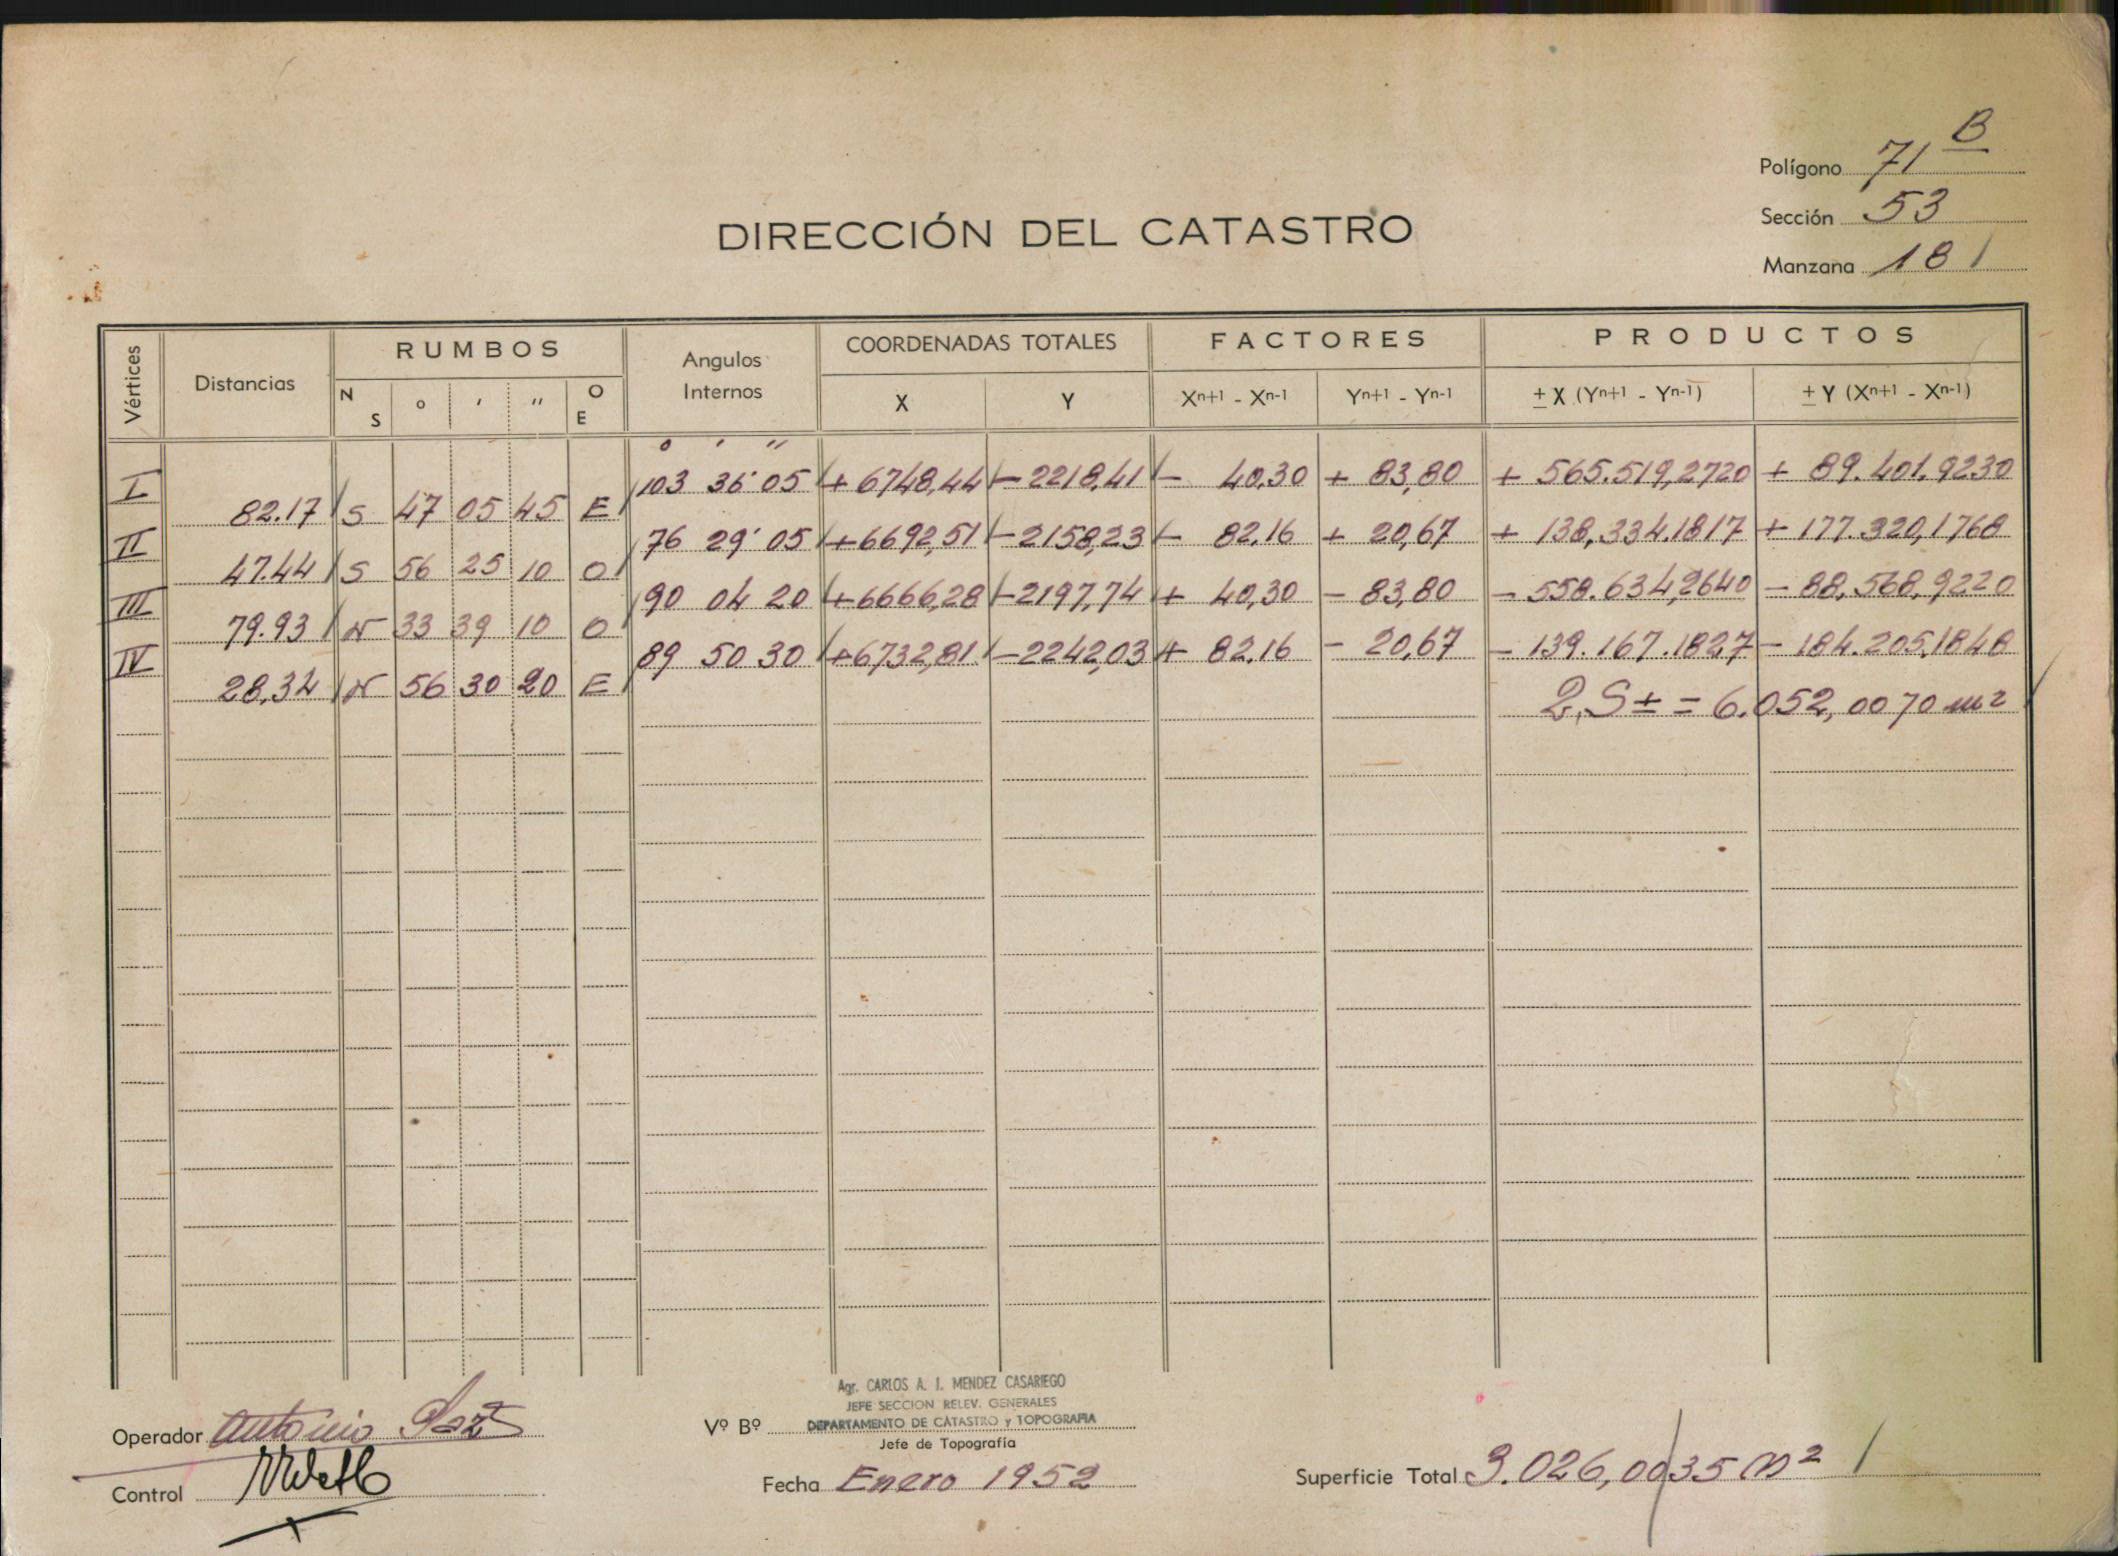 Polígono 71 B
Sección 53
Manzana 181
DIRECCIÓN DEL CATASTRO
Vértices Distancias RUMBOS Angulos Internos COORDENADAS TOTALES FACTORES PRODUCTOS
N S ° ' '' O E X Y Xn+1 - Xn-1 Yn+1 - Yn-1 ± X (Yn+1 - Yn-1) ± Y (Xn+1 - Xn-1)
° ' ''
I 103 36' 05 +6748,44 -2218,41 - 40,30 + 83,80 + 565.519,2720 + 89.401,9230
82.17 S 47 05 45 E
II 76 29' 05 +6692,51 -2158,23 - 82.16 + 20,67 + 138,334.1817 + 177.320,1768
47.44 S 56 25 10 O
III 90 04 20 +6666,28 -2197,74 + 40,30 - 83,80 - 558.634,2640 - 88,568,9220
79.93 N 33 39 10 O
IV 89 50 30 +6732,81 -2242,03 + 82.16 - 20,67 - 139.167.1827 - 184.205,1848
28,34 N 56 30 20 E
2,S ± = 6.052,0070 m2
Agr. CARLOS A. I. MENDEZ CASARIEGO
JEFE SECCION RELEV. GENERALES
Operador Antonio Vº Bº DEPARTAMENTO DE CATASTRO y TOPOGRAFIA
Jefe de Topografía
Control Fecha Enero 1952 Superficie Total 3.026,0035 m2